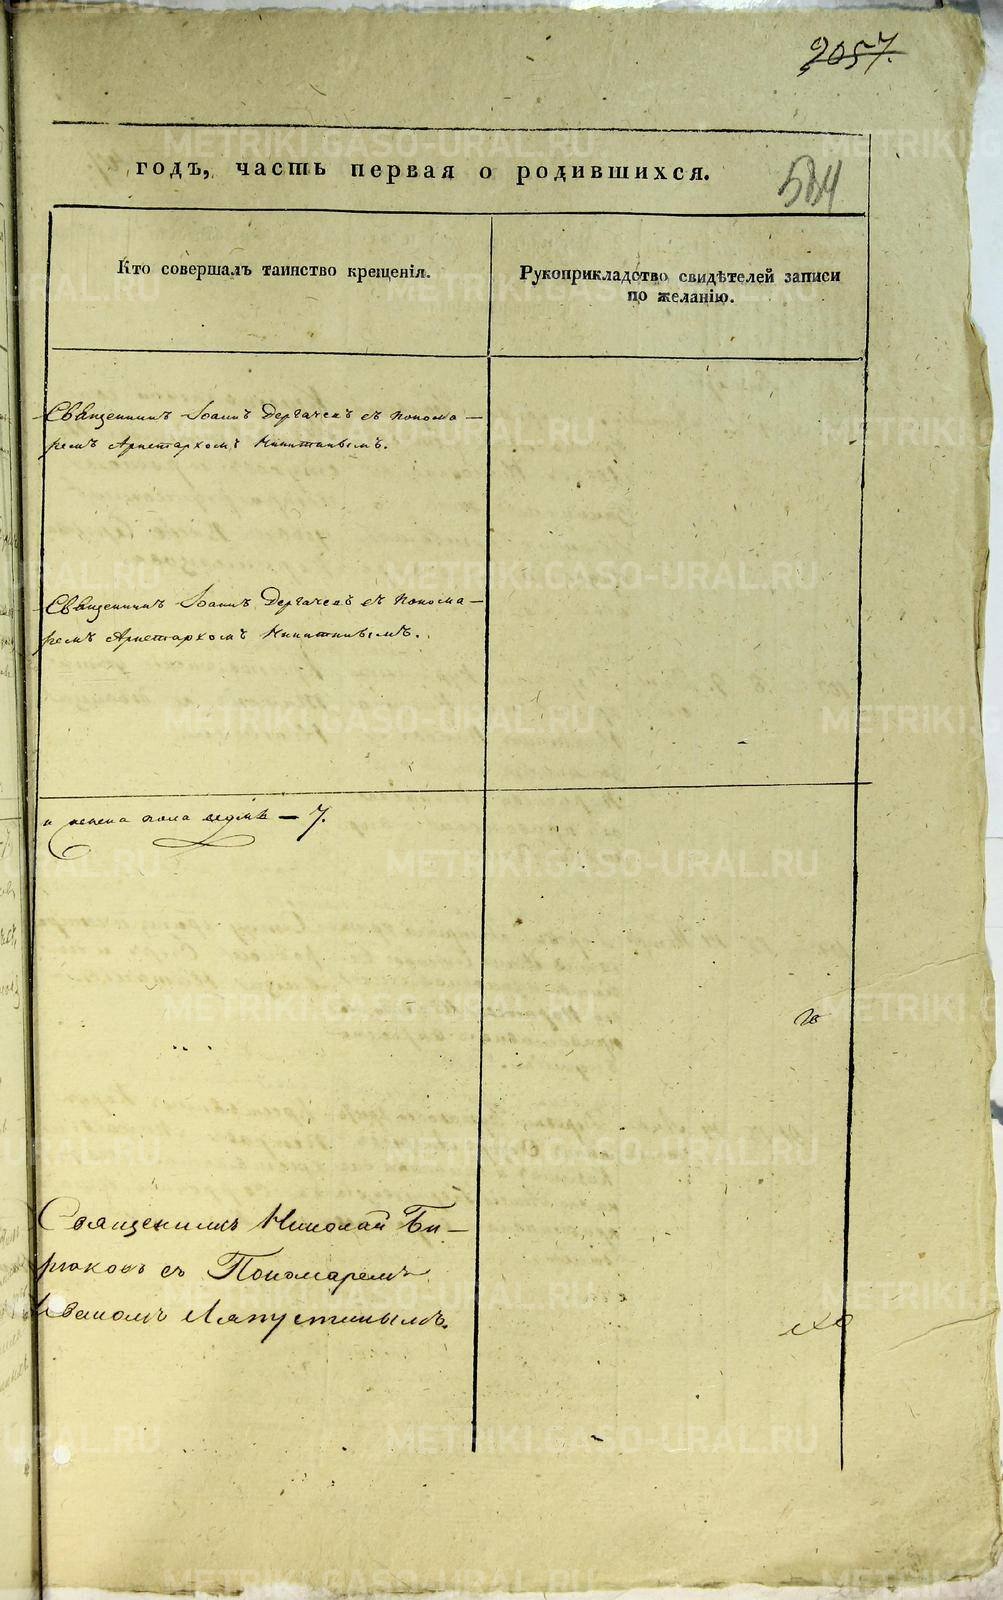 2057.
годъ, часть первая о родившихся.
584
Кто совершалъ таинство крещенія.
Рукоприкладство свидѣтелей записи
по желанію.
Священникъ Іоаннъ Дергачевъ съ Понома-
ремъ Аристархомъ Никитинымъ.
Священникъ Іоаннъ Дергачевъ съ Понома-
ремъ Аристархомъ Никитинымъ.
и женска пола седмь - 7.
Священникъ Николай Би-
рюковъ съ Пономаремъ
Иваномъ Ляпустинымъ.
METRIKI.GASO-URAL.RU